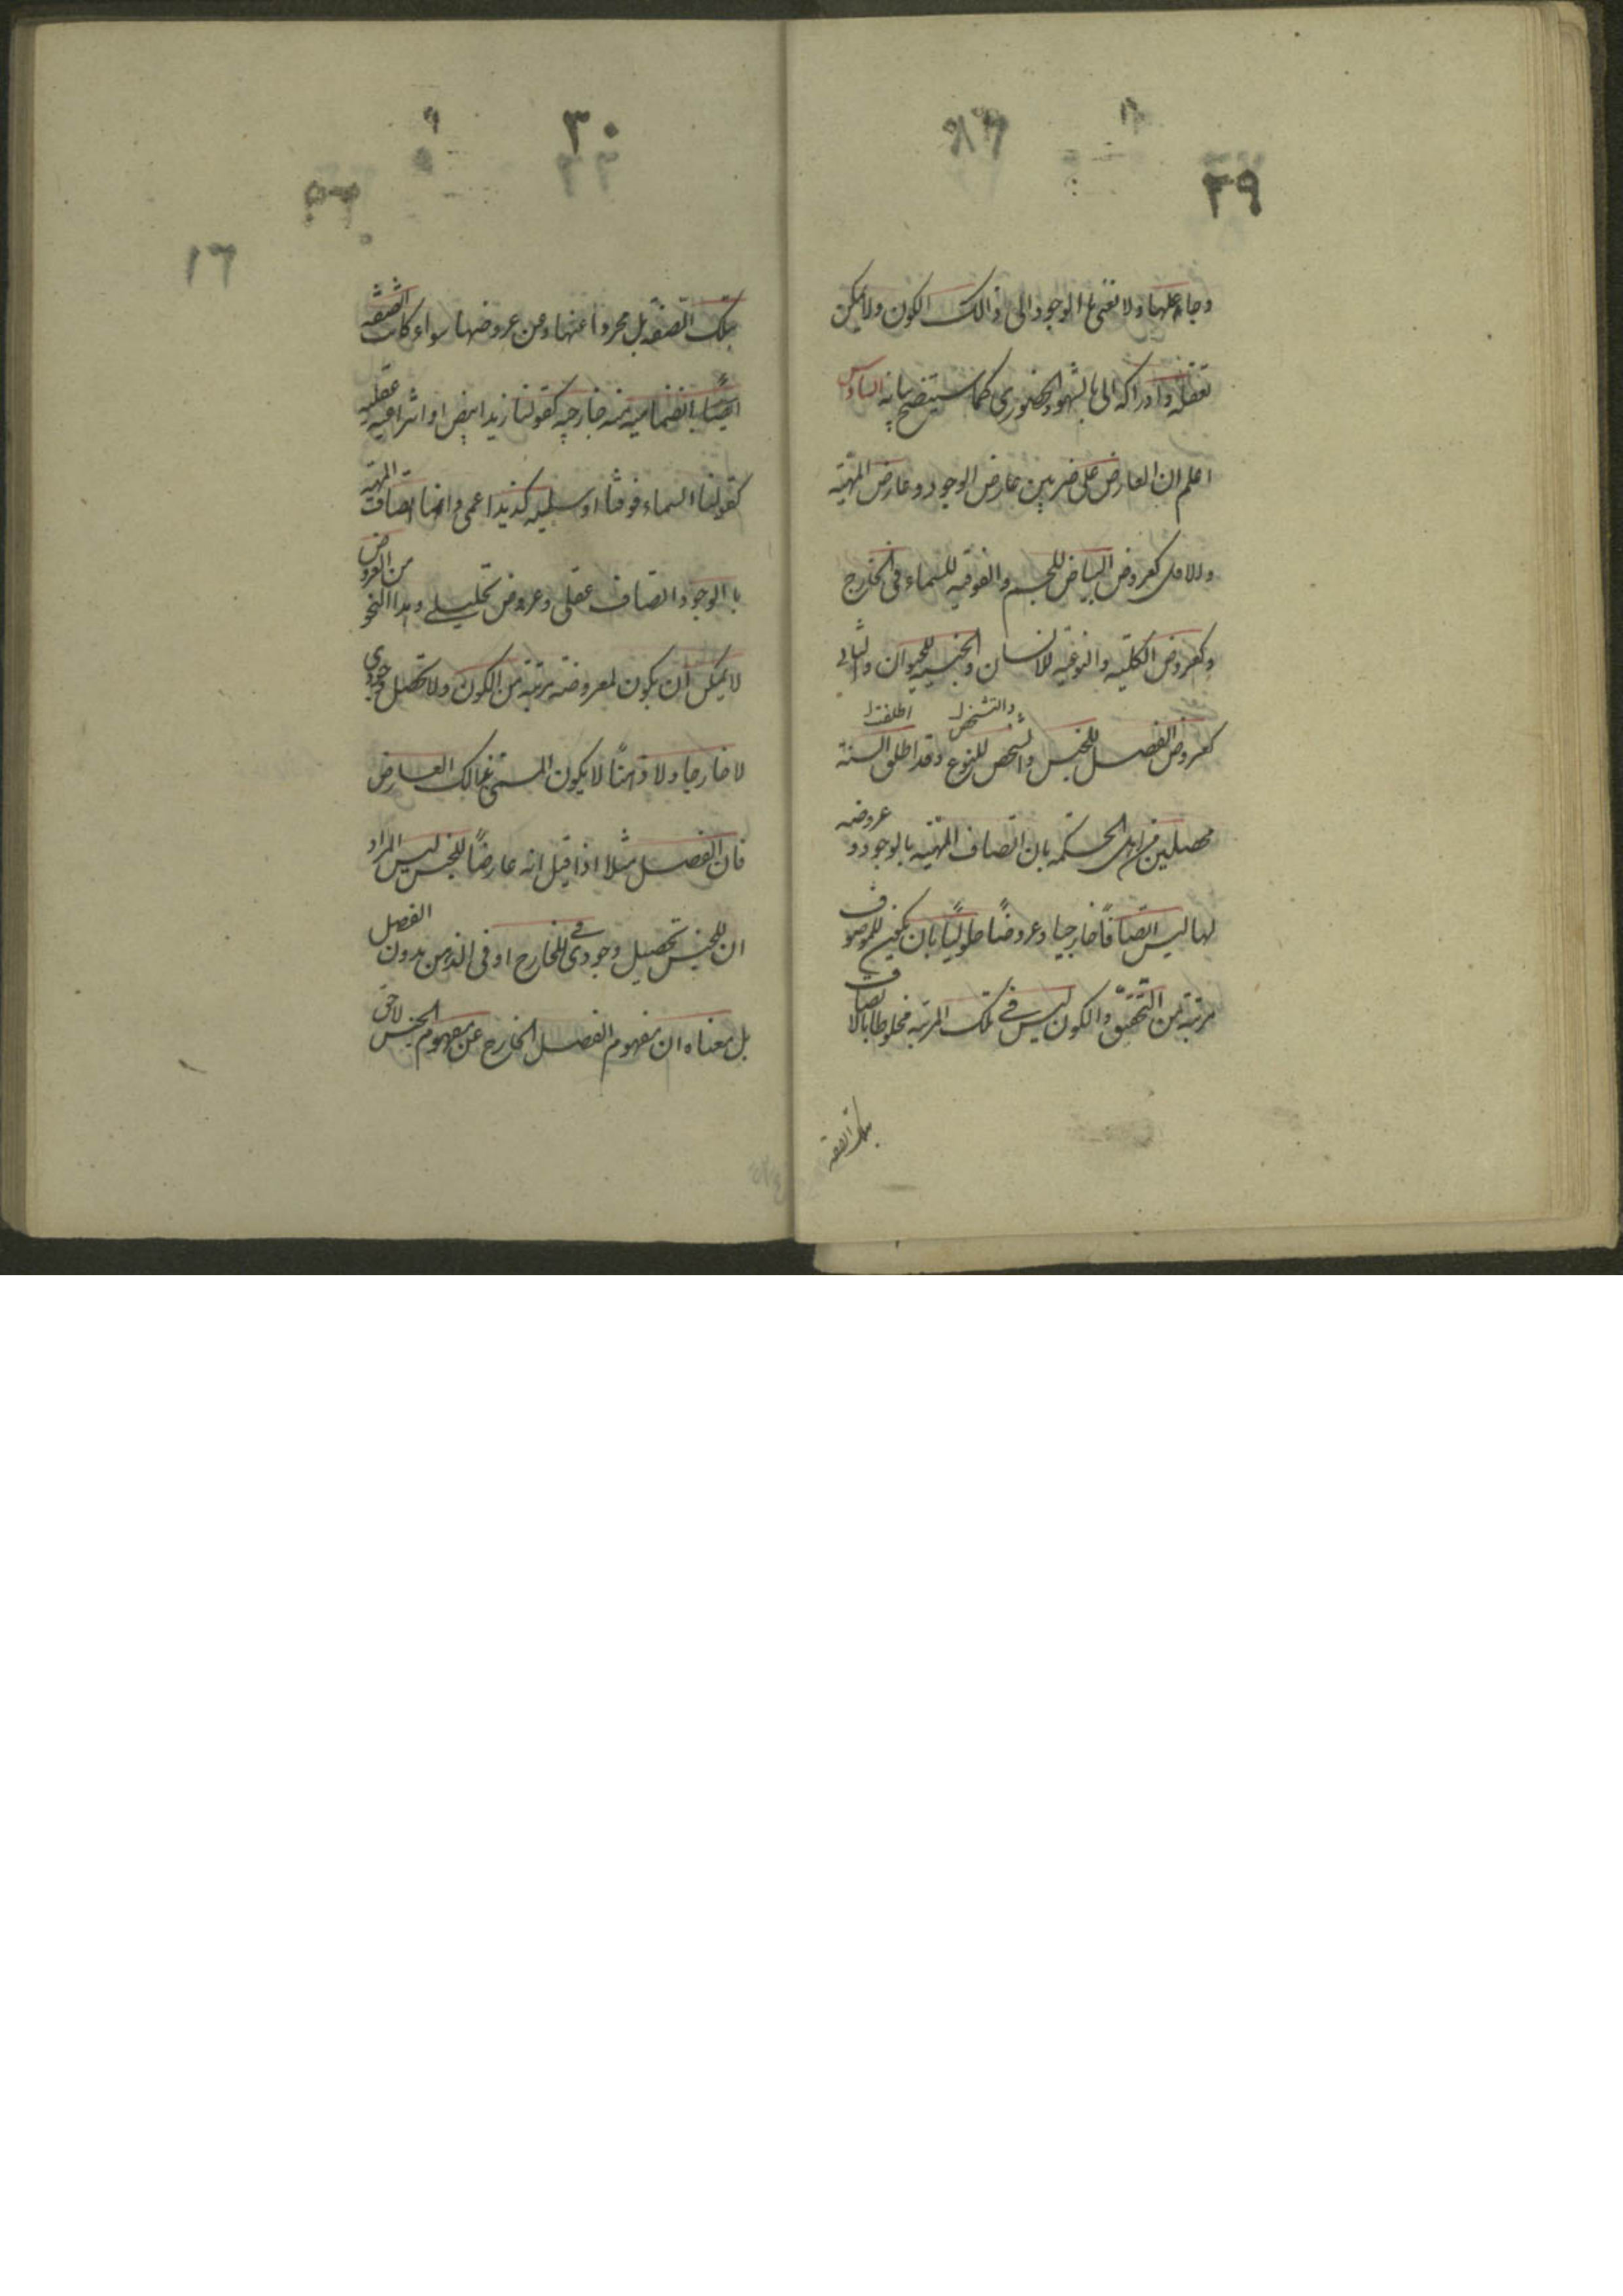 ٢٩
وجاعلها ولا نعنى بالوجود الى ذالك الكون ولا يمكن
تعقله وادراكه الى بالشهود الحضورى كما سيتضح بيانه السادس
اعلم ان العارض على ضربين عارض الوجود وعارض المهية
والاول كعروض البياض للجسم والفوقية للسماء فى الخارج
وكعروض الكلية والنوعية للانسان والجنسية للحيوان والثانى
والتشخص اطلقت
كعروض الفصل للجنس والشخص للنوع وقد اطلق السنة
محصلين من اهل الحكمه بان اتصاف المهية بالوجود و عروضه
لها ليس اتصافا خارجيا وعروضا حلوليا بان يكون للموصوف
مرتبة من التحقق والكون ليس فى تلك المرتبه مخلوطا بالاتصاف
بتلك الصفه
٣٠
١٦
بتلك الصفه بل مجردا عنها وعن عروضها سواء كانت الصفة
انضماميه خارجيه كقولنا زيد ابيض او انتزاعيه عقليه
كقولنا السماء فوقنا او سلبيه كزيد اعمى وانما اتصاف المهية
بالوجود اتصاف عقلى وعروض تحليلى وهذا النحو من العروض
لا يمكن ان يكون لمعروضه مرتبة من الكون ولا تحصل وجودى
لا خارجيا ولا ذهنيا لا يكون المسمى بذالك العارض
فان الفصل مثلا اذا قيل انه عارضا للجنس ليس المراد
ان للجنس تحصيل وجودى فى للخارج او فى الذهن بدون الفصل
بل معناه ان مفهوم الفصل الخارج عن مفهوم الجنس لاحق